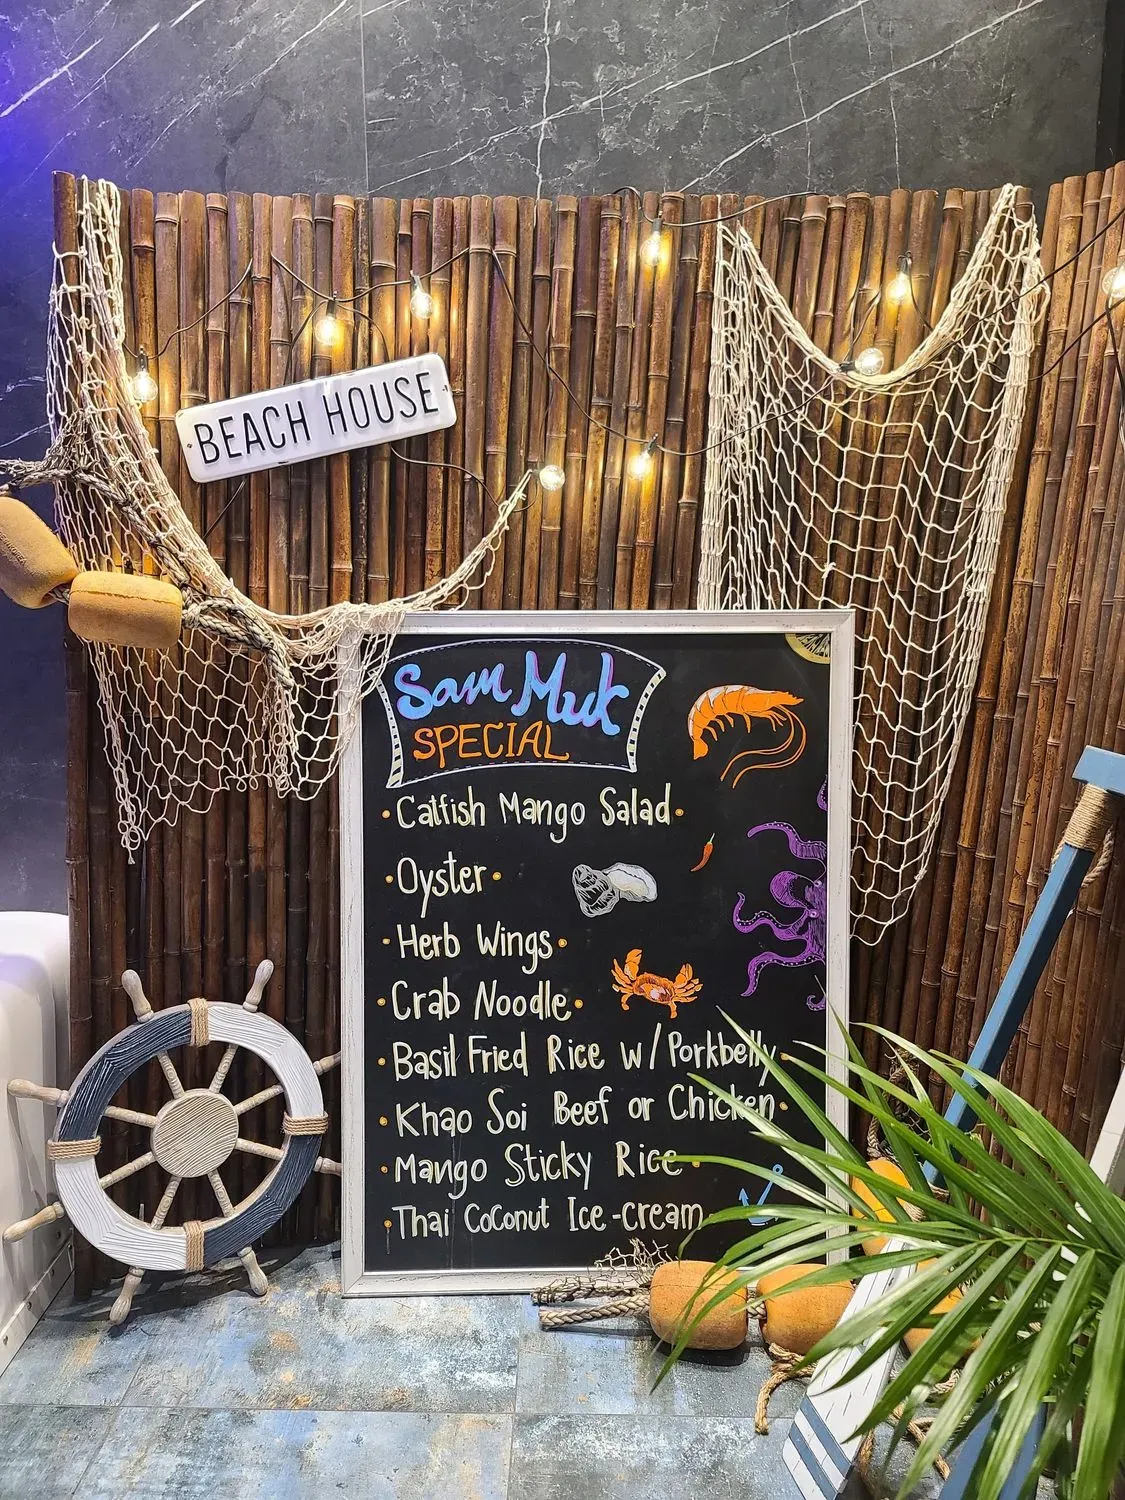 BEACH HOUSE
Sam Muk
SPECIAL
• Catfish Mango Salad •
• Oyster •
• Herb Wings •
• Crab Noodle •
• Basil Fried Rice w/ Porkbelly •
• Khao Soi Beef or Chicken •
• Mango Sticky Rice •
• Thai Coconut Ice-cream